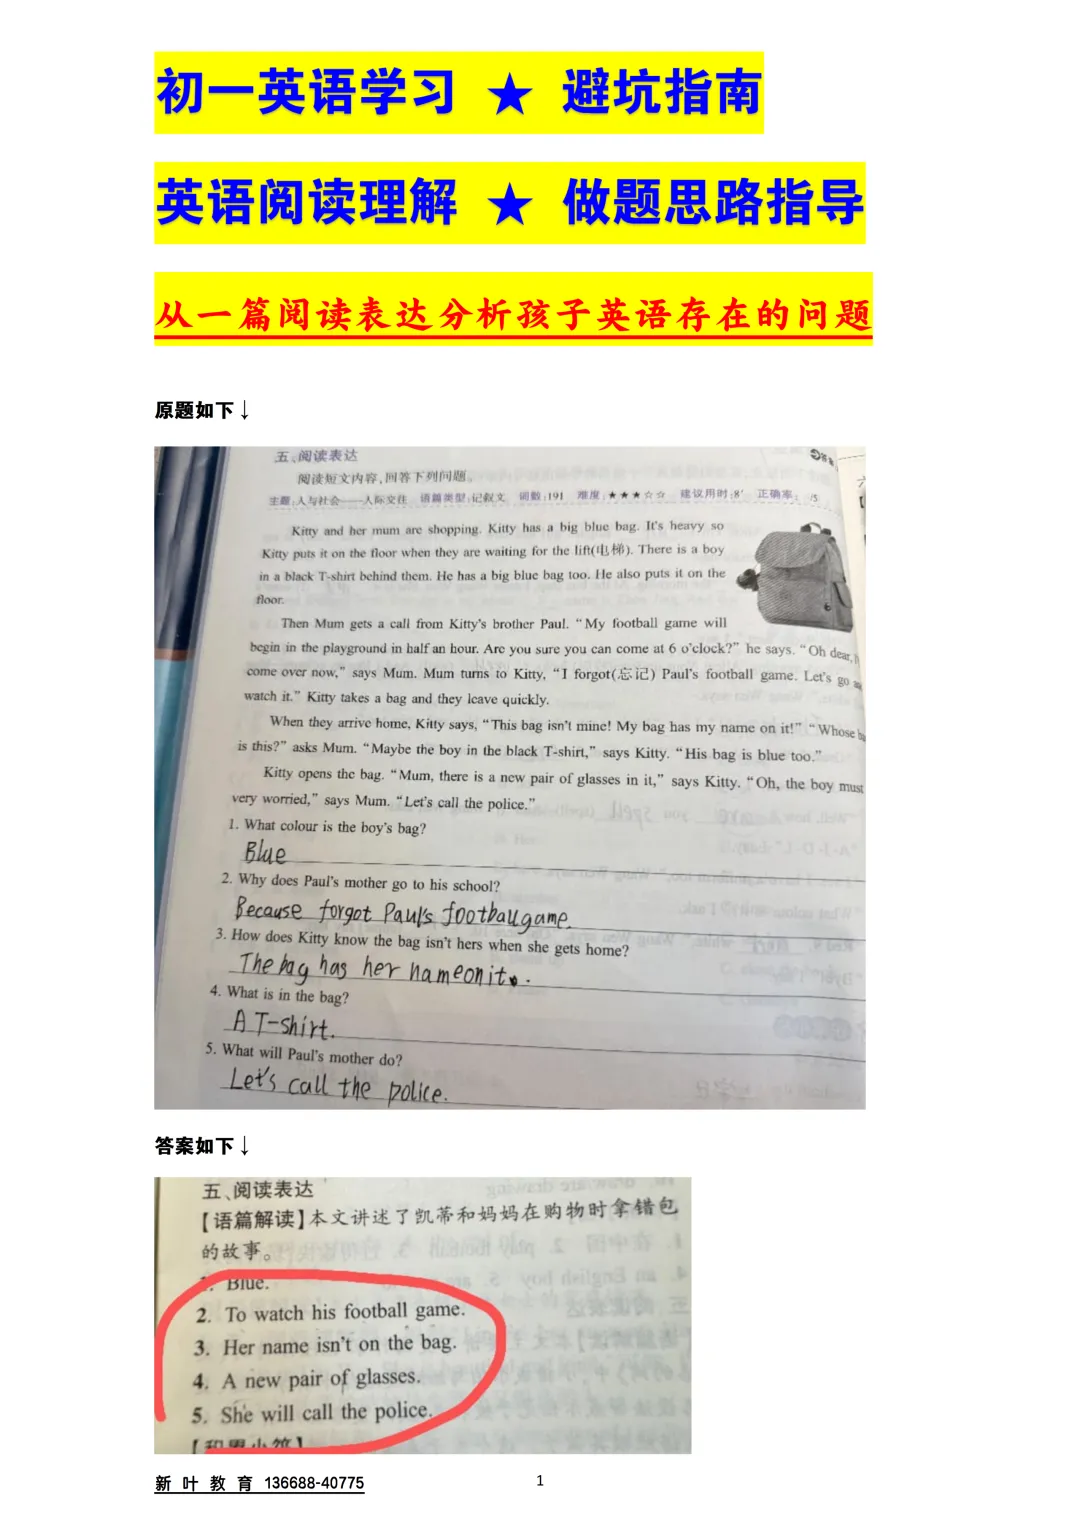 初一英语学习 ★ 避坑指南
英语阅读理解 ★ 做题思路指导
从一篇阅读表达分析孩子英语存在的问题
原题如下↓
五、阅读表达
阅读短文内容,回答下列问题。
主题:人与社会——人际交往 语篇类型:记叙文 词数:191 难度:★★★☆☆ 建议用时:8' 正确率: /5
Kitty and her mum are shopping. Kitty has a big blue bag. It's heavy so
Kitty puts it on the floor when they are waiting for the lift(电梯). There is a boy
in a black T-shirt behind them. He has a big blue bag too. He also puts it on the
floor.
Then Mum gets a call from Kitty's brother Paul. “My football game will
begin in the playground in half an hour. Are you sure you can come at 6 o'clock?” he says. “Oh dear,
come over now,” says Mum. Mum turns to Kitty, “I forgot(忘记) Paul's football game. Let's go
watch it.” Kitty takes a bag and they leave quickly.
When they arrive home, Kitty says, “This bag isn't mine! My bag has my name on it!” “Whose
is this?” asks Mum. “Maybe the boy in the black T-shirt,” says Kitty. “His bag is blue too.”
Kitty opens the bag. “Mum, there is a new pair of glasses in it,” says Kitty. “Oh, the boy must
very worried,” says Mum. “Let's call the police.”
1. What colour is the boy's bag?
Blue
2. Why does Paul's mother go to his school?
Because forgot Paul's football game.
3. How does Kitty know the bag isn't hers when she gets home?
The bag has her name on it.
4. What is in the bag?
A T-shirt.
5. What will Paul's mother do?
Let's call the police.
答案如下↓
五、阅读表达
【语篇解读】本文讲述了凯蒂和妈妈在购物时拿错包
的故事。
1. Blue.
2. To watch his football game.
3. Her name isn't on the bag.
4. A new pair of glasses.
5. She will call the police.
新 叶 教 育 136688-40775
1